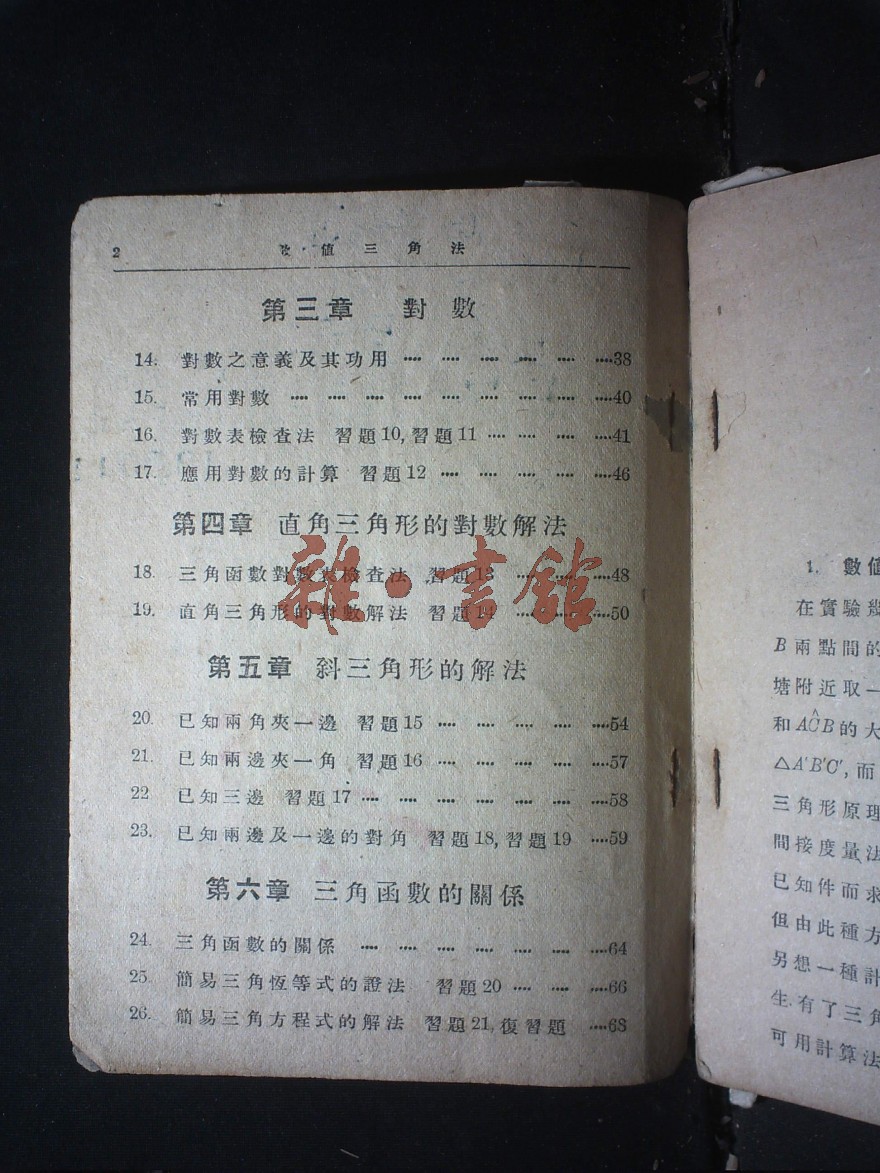 2 數值三角法
第三章 對數
14. 對數之意義及其功用 ····38
15. 常用對數 ····40
16. 對數表檢查法 習題10,習題11 ····41
17. 應用對數的計算 習題12 ····46
第四章 直角三角形的對數解法
18. 三角函數對數表檢查法 習題13 ····48
19. 直角三角形的對數解法 習題14 ····50
雜·書館
第五章 斜三角形的解法
20. 已知兩角夾一邊 習題15 ····54
21. 已知兩邊夾一角 習題16 ····57
22 已知三邊 習題17 ····58
23. 已知兩邊及一邊的對角 習題18,習題19 ····59
第六章 三角函數的關係
24. 三角函數的關係 ····64
25. 簡易三角恆等式的證法 習題20 ····66
26. 簡易三角方程式的解法 習題21,復習題 ····68
1. 數值
在實驗幾
B兩點間的
塘附近取一
和AĈB的大
△A'B'C',而
三角形原理
間接度量法
已知件而求
但由此種方
另想一種計
生.有了三角
可用計算法